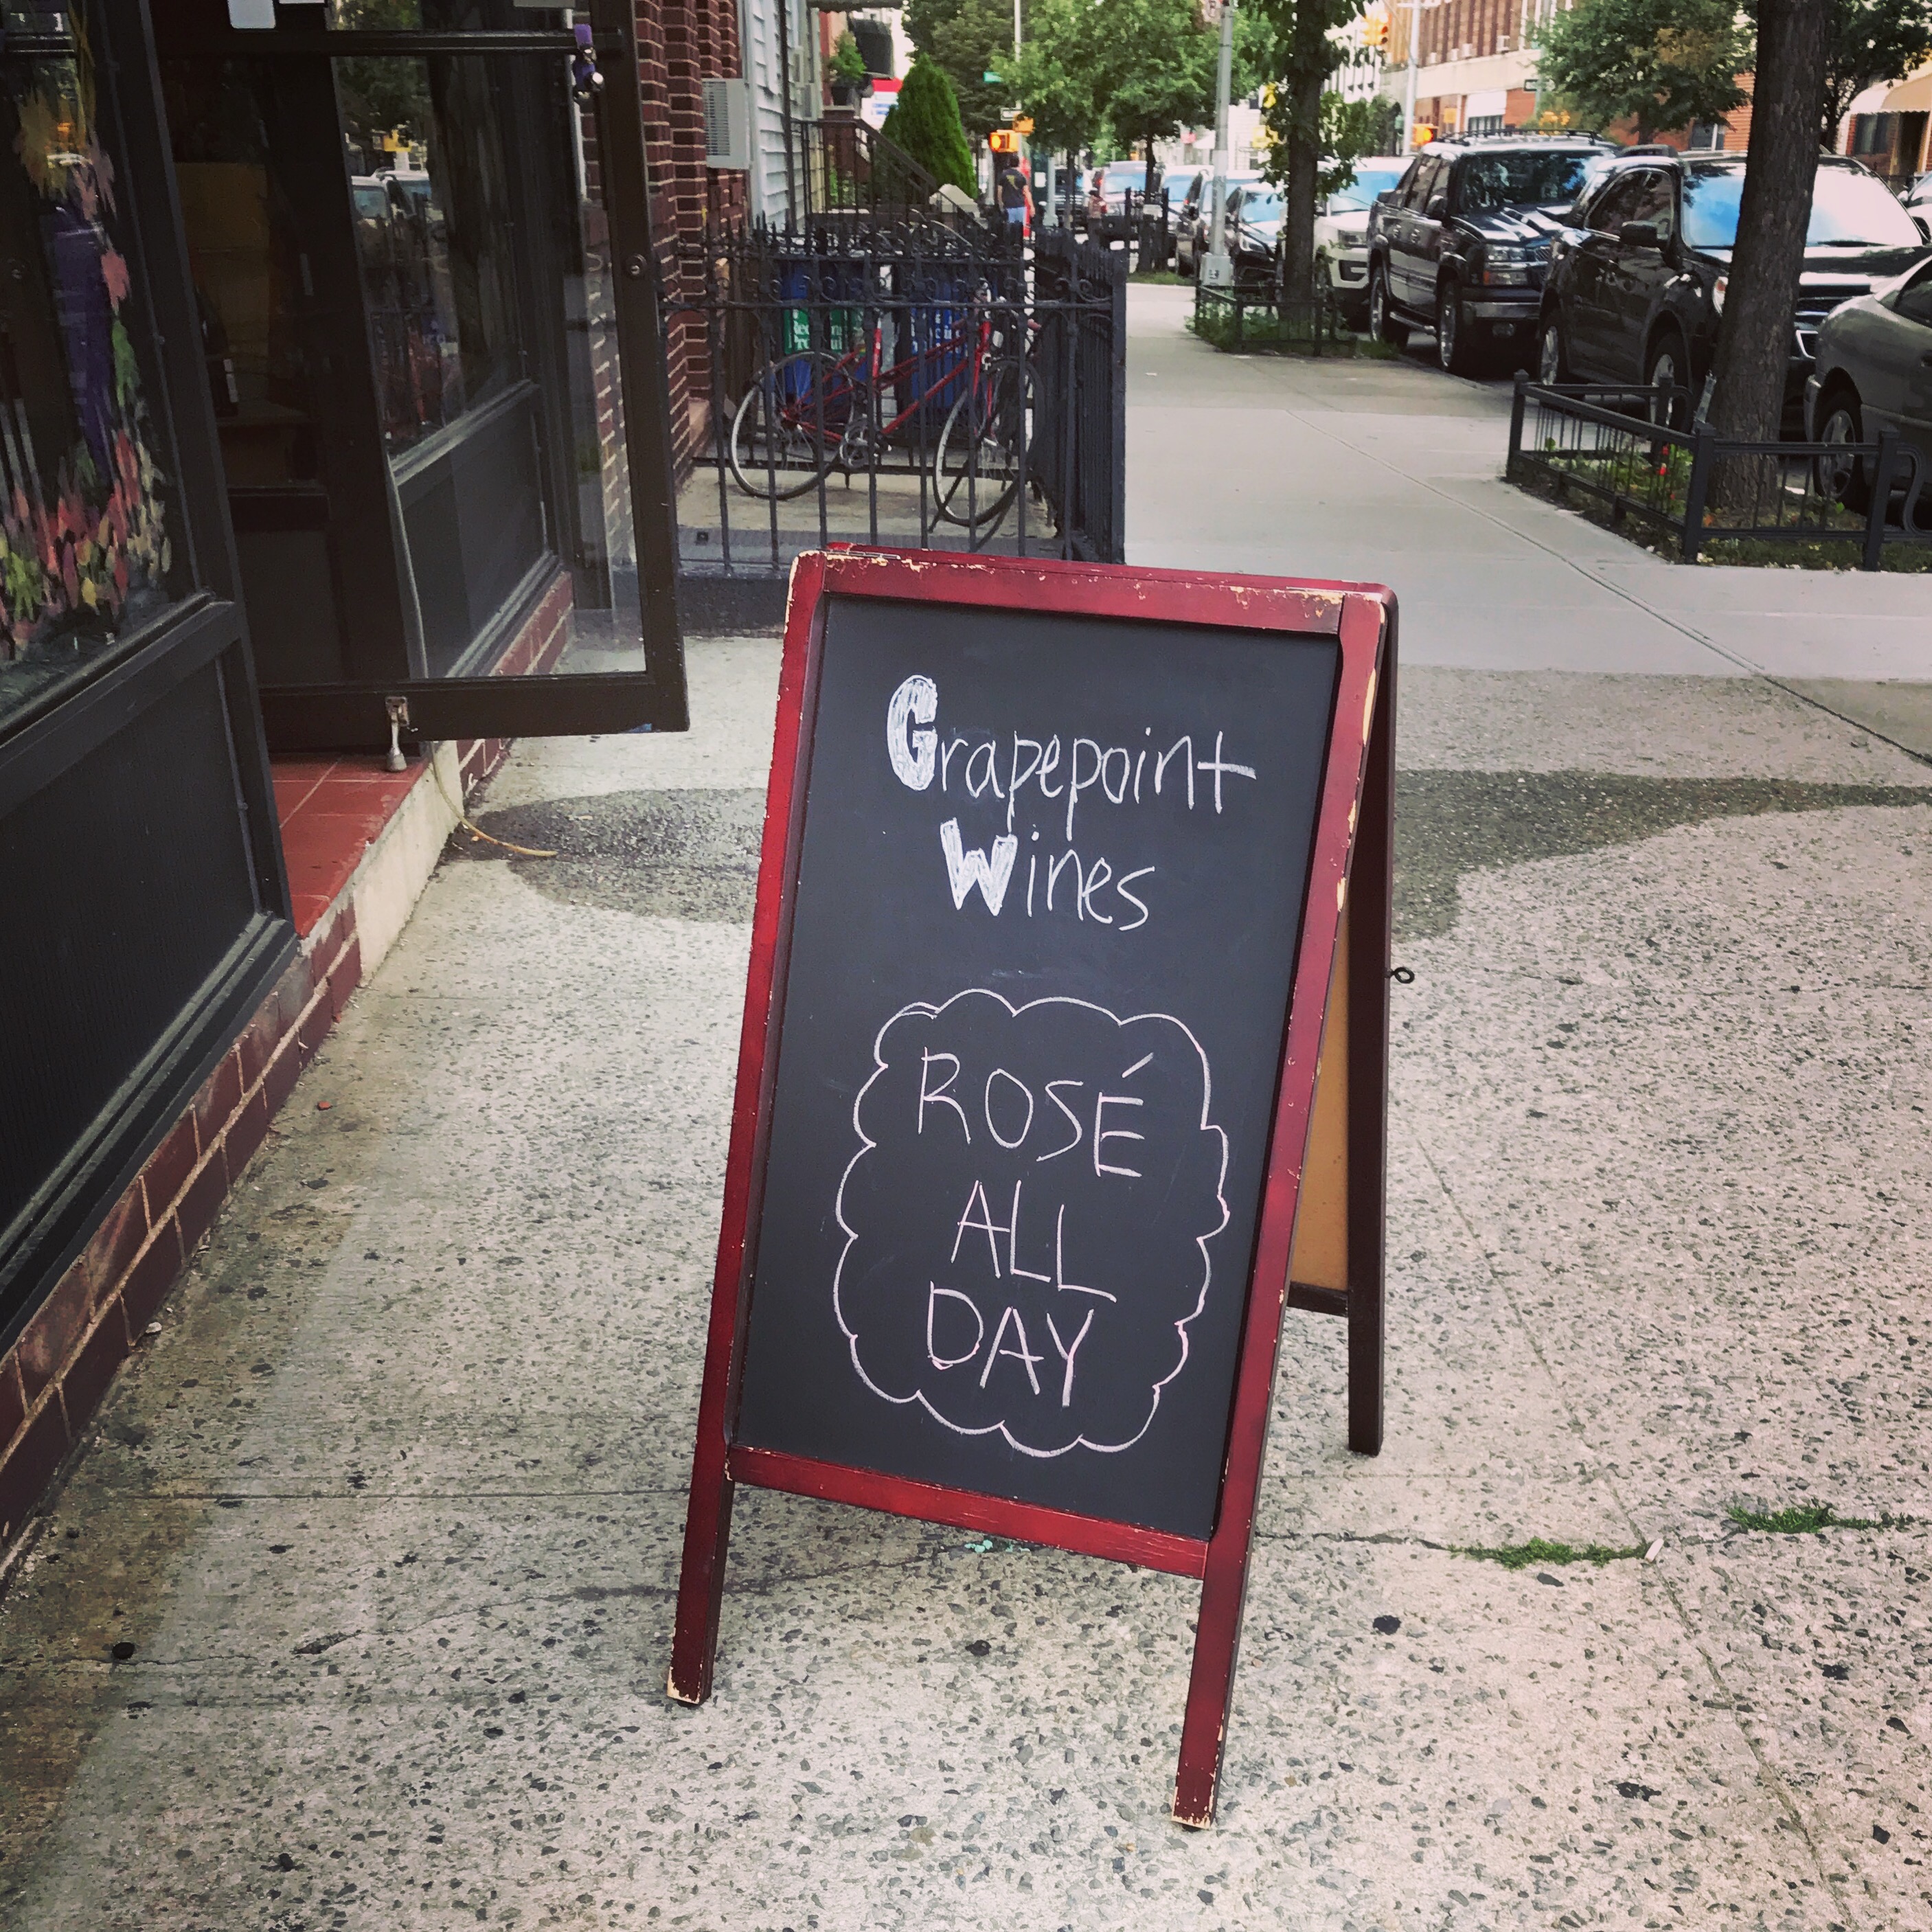 Grapepoint
Wines
ROSÉ
ALL
DAY